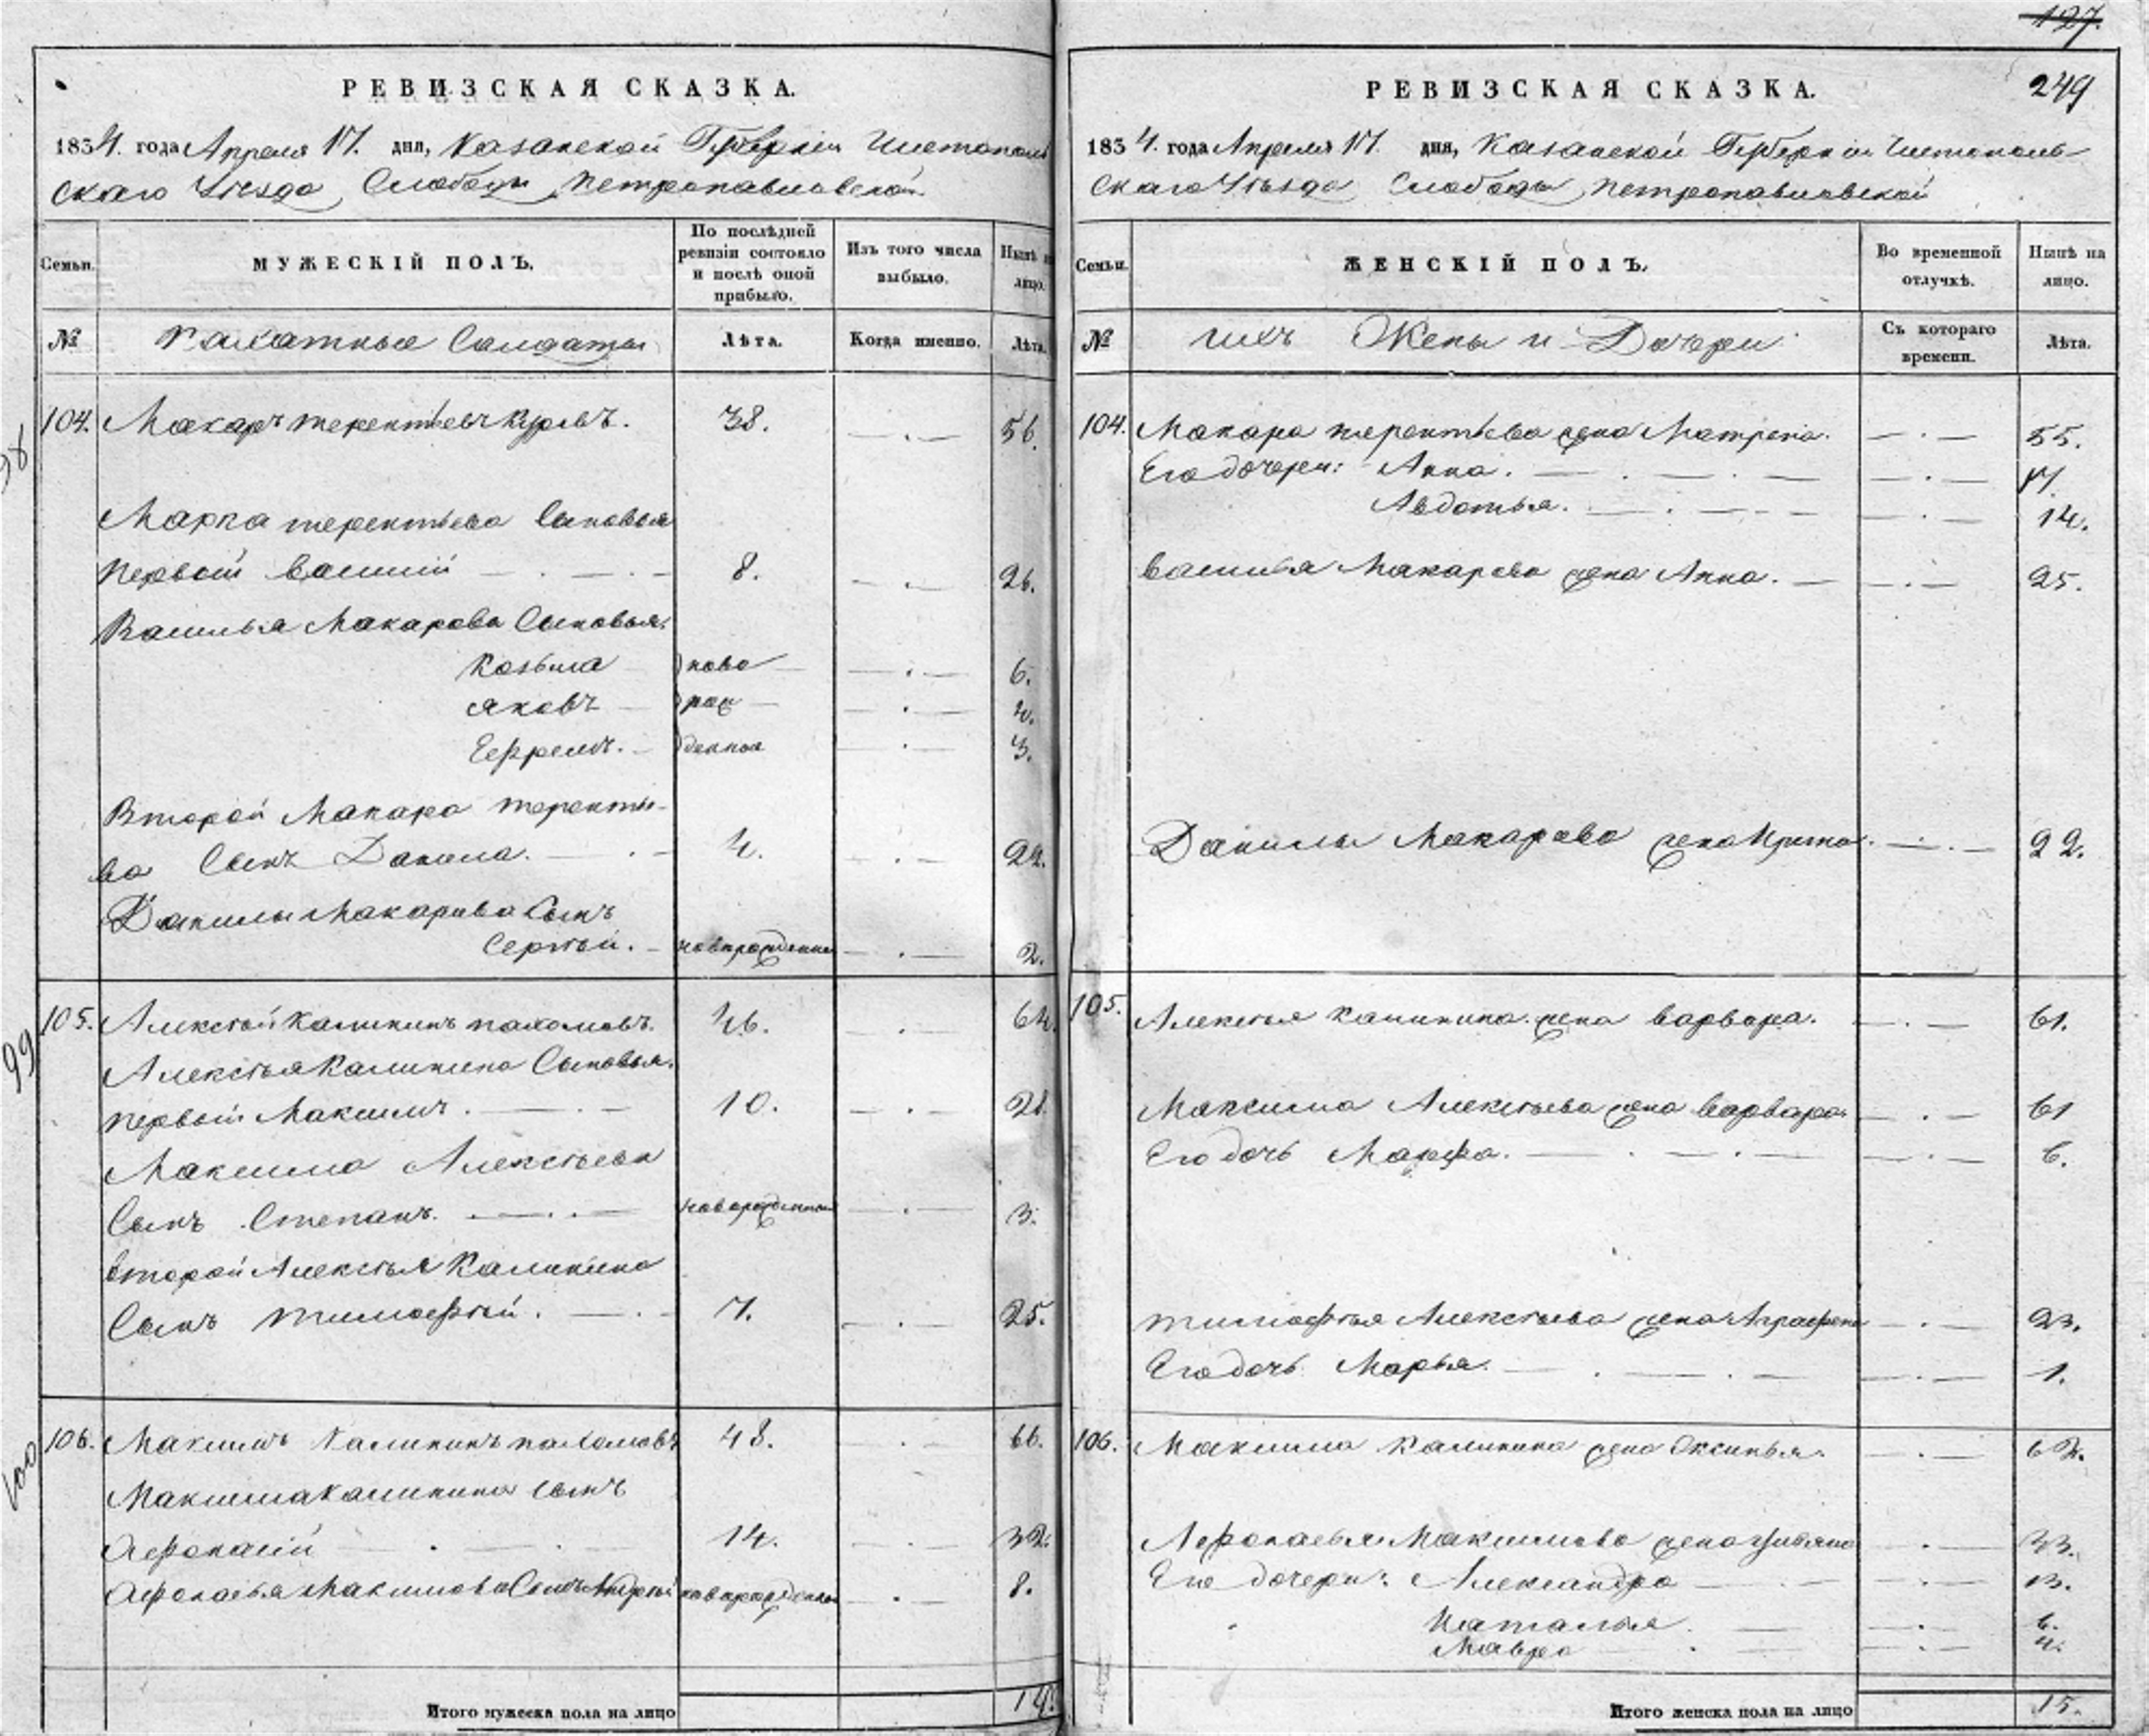 РЕВИЗСКАЯ СКАЗКА.
1834. года Апреля 17. дня, Казанской Губернии Чистополь
скаго Уезда Слободы Петропавловской
Семьи.
МУЖЕСКІЙ ПОЛЪ.
По послѣдней ревизіи состояло и послѣ оной прибыло.
Изъ того числа выбыло.
Нынѣ на лицо.
№
Солдаты
Лѣта.
Когда именно.
Лѣта.
98
104. Макаръ терентьевъ 38. 56.
Марка терентьева Сыновья
первой василий 8. 26.
Василья Макарова Сыновья.
Козьма ново 6.
яковъ рож 4.
Ефремъ. денныя 3.
Второй Макара теренть-
ва Сынъ Данила. 4. 22.
Данилы Макарова Сынъ
Сергѣй. новорожденной 2.
99
105. Алексѣй Калининъ пахомовъ. 46. 64.
Алексѣя Калинина Сыновья.
первой Максимъ. 10. 28.
Максима Алексѣева
Сынъ Степанъ. новорожденной 3.
второй Алексѣя Калинина
Сынъ тимофѣй. 7. 25.
100
106. Максимъ Калининъ пахомовъ 48. 66.
Максима калинина сынъ
Афонасій 14. 32.
Афонасья Максимова Сынъ Андрей новорожденной 8.
Итого мужеска пола на лицо 14.
127.
249
РЕВИЗСКАЯ СКАЗКА.
1834. года Апреля 17. дня, Казанской Губернии Чистополь-
скаго Уѣзда Слободы петропавловской
Семьи.
ЖЕНСКІЙ ПОЛЪ.
Во временной отлучкѣ.
Нынѣ на лицо.
№
ихъ Жены и Дочери
Съ котораго времени.
Лѣта.
104. Макара терентьева жена Матрена. 55.
Его дочери: Анна. 17.
Авдотья. 14.
василья Макарова жена Анна. 25.
Данилы Макарова жена Ирина. 22.
105. Алексѣя калинина жена варвара. 61.
Максима Алексѣева жена варвара 61
Его дочь Марфа. 6.
тимофѣя Алексѣева жена Аграфена 23.
Его дочь Марья. 1.
106. Максима Калинина жена Оксинья. 62.
Афонасья Максимова жена Ульяна 33.
Его дочери: Александра 13.
Наталья 6.
Мавра 4.
Итого женска пола на лицо 15.